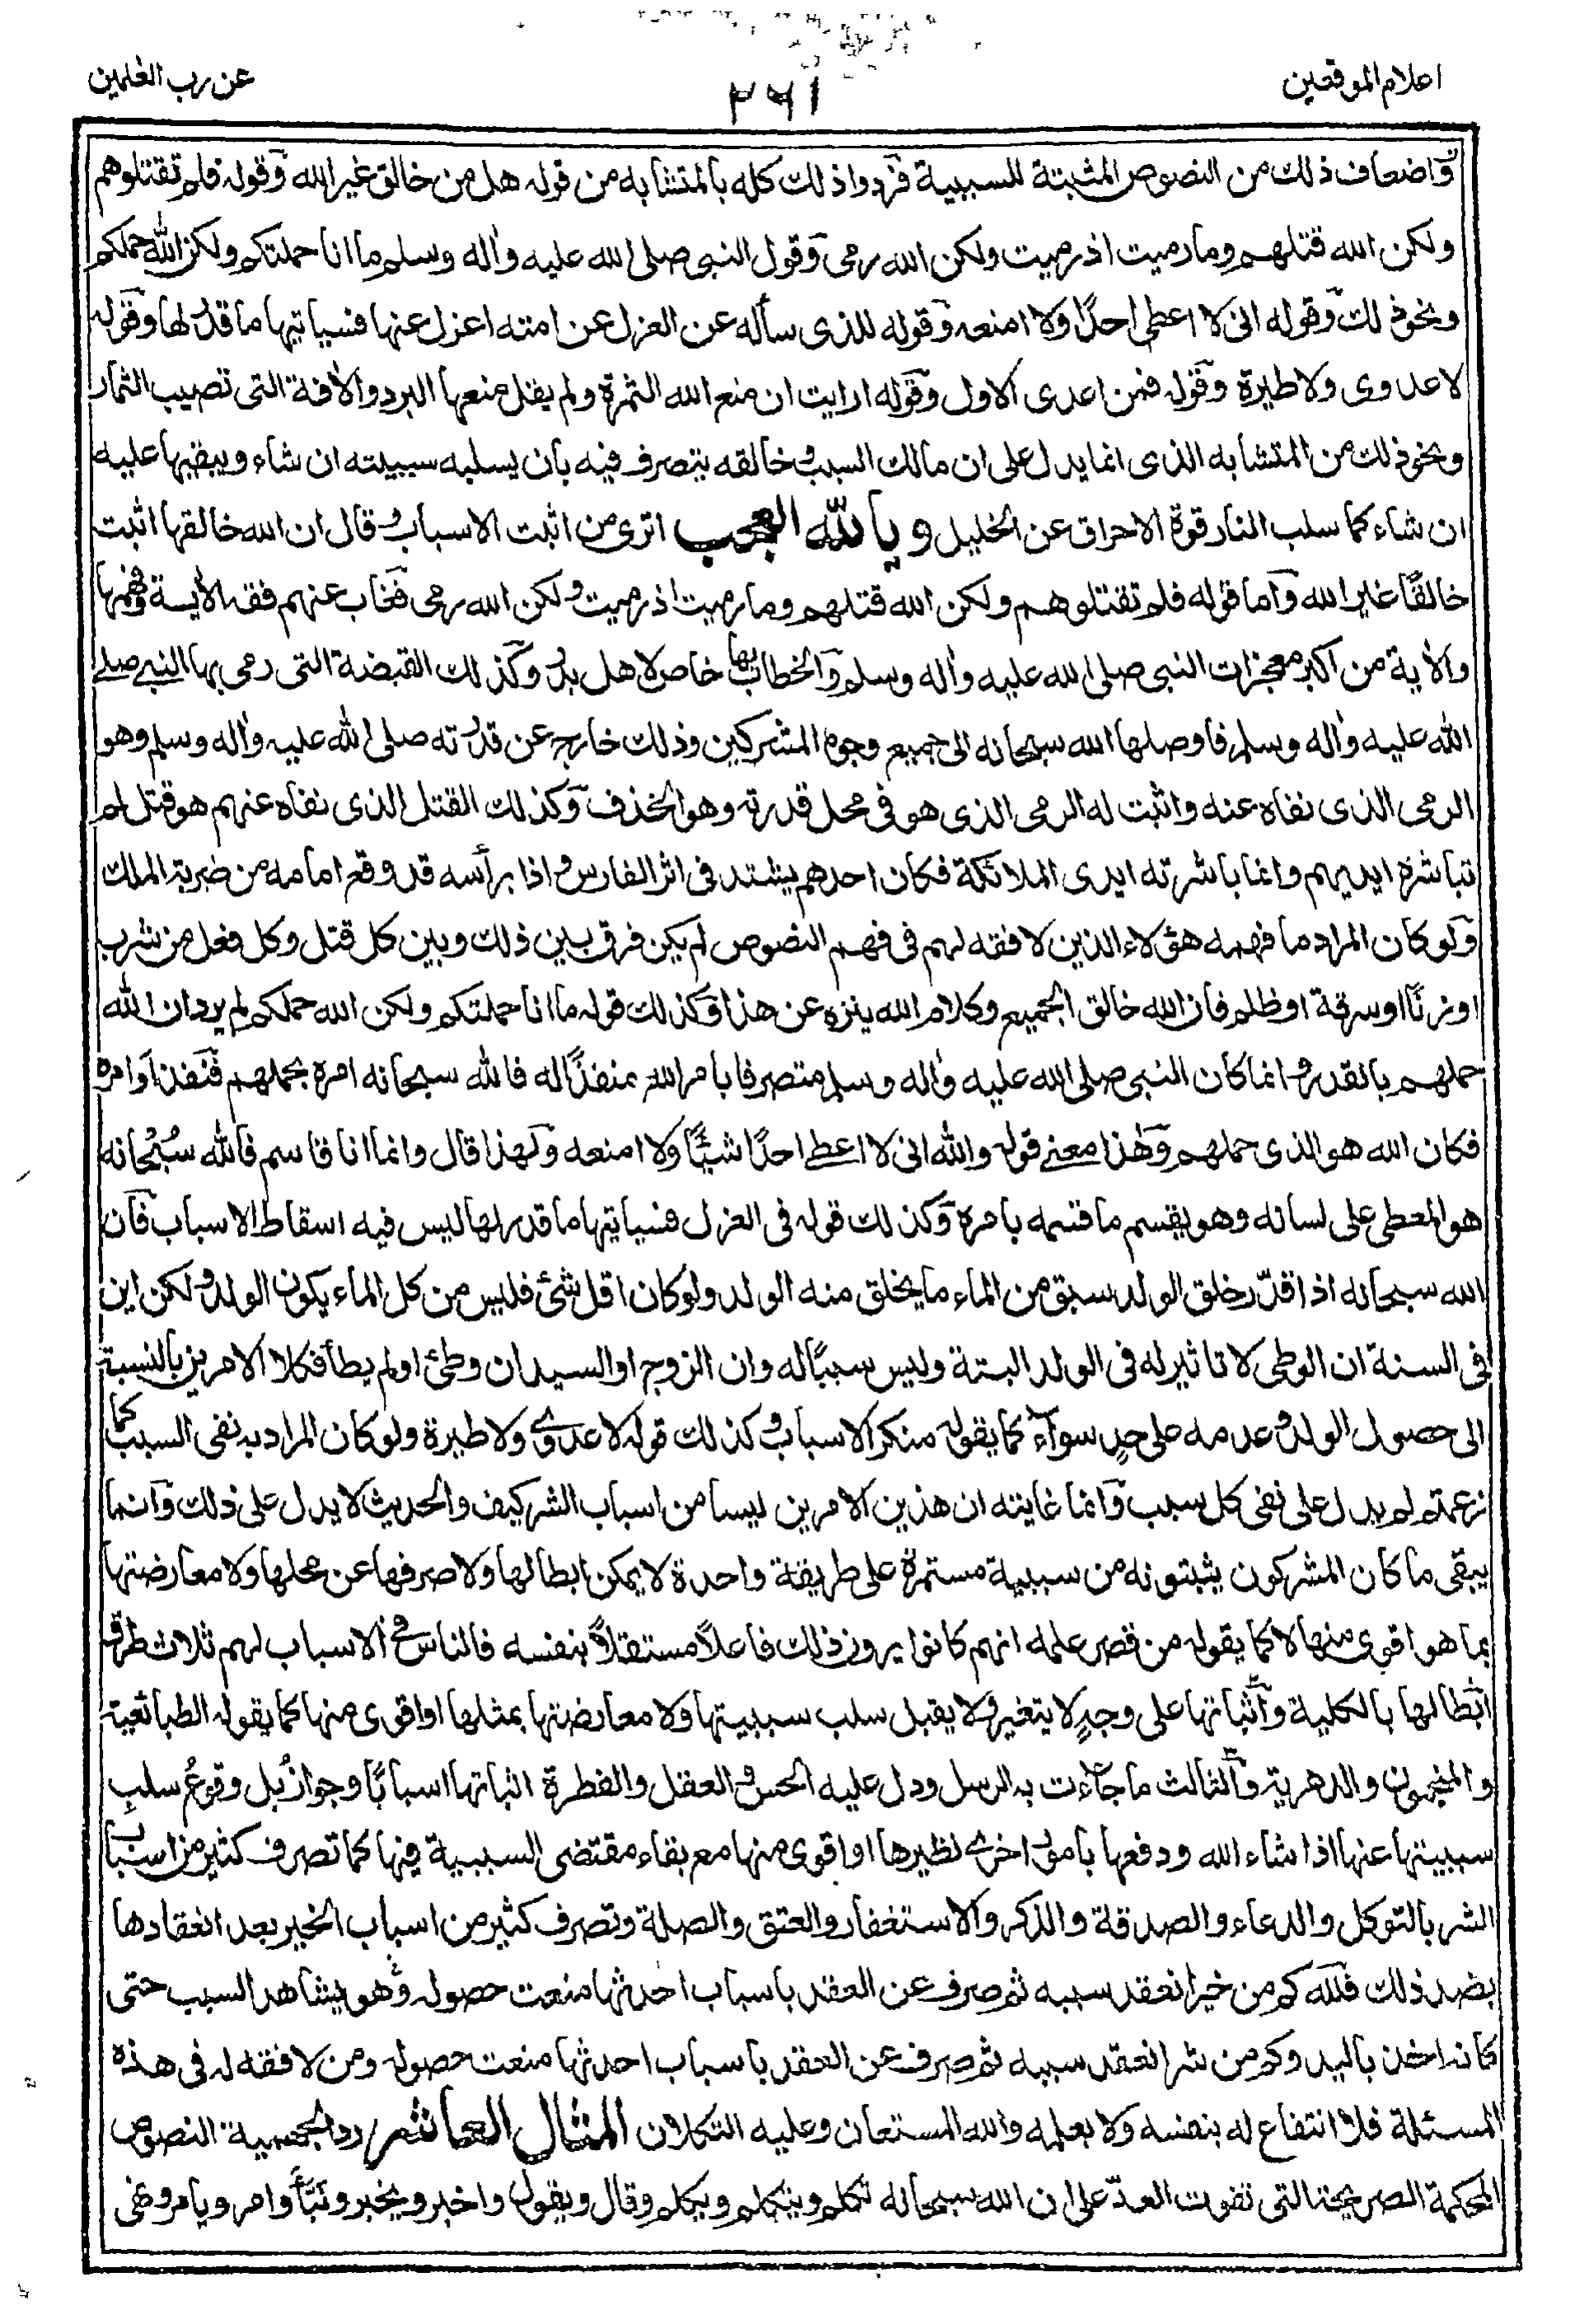 اعلام الموقعين
٢٦١
عن رب العلمين
وَاضعاف ذلك من النصوص المثبتة للسببية فردوا ذلك كله بالمتشابه من قوله هل من خالق غير الله وقوله فلم تقتلوهم
ولكن الله قتلهم وما رميت اذ رميت ولكن الله رمى وقول النبى صلى الله عليه واٰله وسلم ما انا حملتكم ولكن الله حملكم
ونحو ذلك وقوله انى لا اعطى احدًا ولا امنعه وقوله للذى سأله عن العزل عن امته اعزل عنها فسياتيها ما قدر لها وقوله
لا عدوى ولا طيرة وقوله فمن اعدى الاول وقوله ارايت ان منع الله الثمرة ولم يقل منعها البرد والاٰفة التى تصيب الثمار
ونحو ذلك من المتشابه الذى انما يدل على ان مالك السبب وخالقه يتصرف فيه بان يسلبه سببيته ان شاء ويبقيها عليه
ان شاء كما سلب النار قوة الاحراق عن الخليل ويا لله العجب اترى من اثبت الاسباب وقال ان الله خالقها اثبت
خالقًا غير الله وَاما قوله فلم تقتلوهم ولكن الله قتلهم وما رميت اذ رميت ولكن الله رمى فغاب عنهم فقه الاٰية وفهمها
والاٰية من اكبر معجزات النبى صلى الله عليه واٰله وسلم والخطاب بها خاص لاهل بدر وكذلك القبضة التى رمى بها النبى صلى
الله عليه واٰله وسلم فاوصلها الله سبحانه الى جميع وجوه المشركين وذلك خارج عن قدرته صلى الله عليه واٰله وسلم وهو
الرمى الذى نفاه عنه واثبت له الرمى الذى هو فى محل قدرته وهو الخذف وكذلك القتل الذى نفاه عنهم هو قتل لم
تباشره ايديهم وانما باشرته ايدى الملائكة فكان احدهم يشتد فى اثر الفارس واذا برأسه قد وقع امامه من ضربة الملك
ولو كان المراد ما فهمه هؤلاء الذين لا فقه لهم فى فهم النصوص لم يكن فرق بين ذلك وبين كل قتل وكل فعل من شرب
او زنًا او سرقة او ظلم فان الله خالق الجميع وكلام الله ينزه عن هذا وكذلك قوله ما انا حملتكم ولكن الله حملكم لم يرد ان الله
حملهم بالقدر وانما كان النبى صلى الله عليه واٰله وسلم متصرفا بامر الله منفذًا له فالله سبحانه امره بحملهم فنفذ اوامره
فكان الله هو الذى حملهم وهٰذا معنى قوله والله انى لا اعطى احدًا شيئًا ولا امنعه ولهذا قال وانما انا قاسم فالله سُبْحانه
هو المعطى على لسانه وهو يقسم ما قسمه بامره وكذلك قوله فى العزل فسياتيها ما قدر لها ليس فيه اسقاط الاسباب فان
الله سبحانه اذا قدّر خلق الولد سبق من الماء ما يخلق منه الولد ولو كان اقل شئ فليس من كل الماء يكون الولد ولكن اين
فى السنة ان الوطى لا تاثير له فى الولد البتة وليس سببًا له وان الزوج او السيد ان وطئ او لم يطأ فكلا الامرين بالنسبة
الى حصول الولد وعدمه على حدٍ سواءٓ كما يقوله منكر الاسباب وكذلك قوله لا عدوى ولا طيرة ولو كان المراد به نفى السبب كما
زعمتم لم يدل على نفى كل سبب وانما غايته ان هذين الامرين ليسا من اسباب الشر كيف والحديث لا يدل على ذلك وانما
يبقى ما كان المشركون يثبتونه من سببية مستمرة على طريقة واحدة لا يمكن ابطالها ولا صرفها عن محلها ولا معارضتها
بما هو اقوى منها لا كما يقوله من قصر علمه انهم كانوا يرون ذلك فاعلاً مستقلاً بنفسه فالناس فى الاسباب لهم ثلاث طرق
ابطالها بالكلية واثباتها على وجهٍ لا يتغير ولا يقبل سلب سببيتها ولا معارضتها بمثلها او اقوى منها كما يقوله الطبائعية
والمنجمون والدهرية والثالث ما جاءت به الرسل ودل عليه الحس والعقل والفطرة اثباتها اسبابًا وجوازُ بل وقوعُ سلبِ
سببيتها عنها اذا شاء الله ودفعها بامور اخرى نظيرها او اقوى منها مع بقاء مقتضى السببية فيها كما تصرف كثير من اسباب
الشر بالتوكل والدعاء والصدقة والذكر والاستغفار والعتق والصلة وتصرف كثير من اسباب الخير بعد انعقادها
بضد ذلك فلله كم من خير انعقد سببه ثم صرف عن العقد باسباب احدثها منعت حصوله وهو يشاهد السبب حتى
كانه اخذ باليد وكم من شر انعقد سببه ثم صرف عن العقد باسباب احدثها منعت حصوله ومن لا فقه له فى هذه
المسئلة فلا انتفاع له بنفسه ولا بعلمه والله المستعان وعليه التكلان المثال العاشر رد الجهمية النصوص
المحكمة الصريحة التى تفوت العدّ على ان الله سبحانه تكلم ويتكلم ويكلم وقال ويقول واخبر ويخبر ونَبَّأَ وامر ويامر ونهى